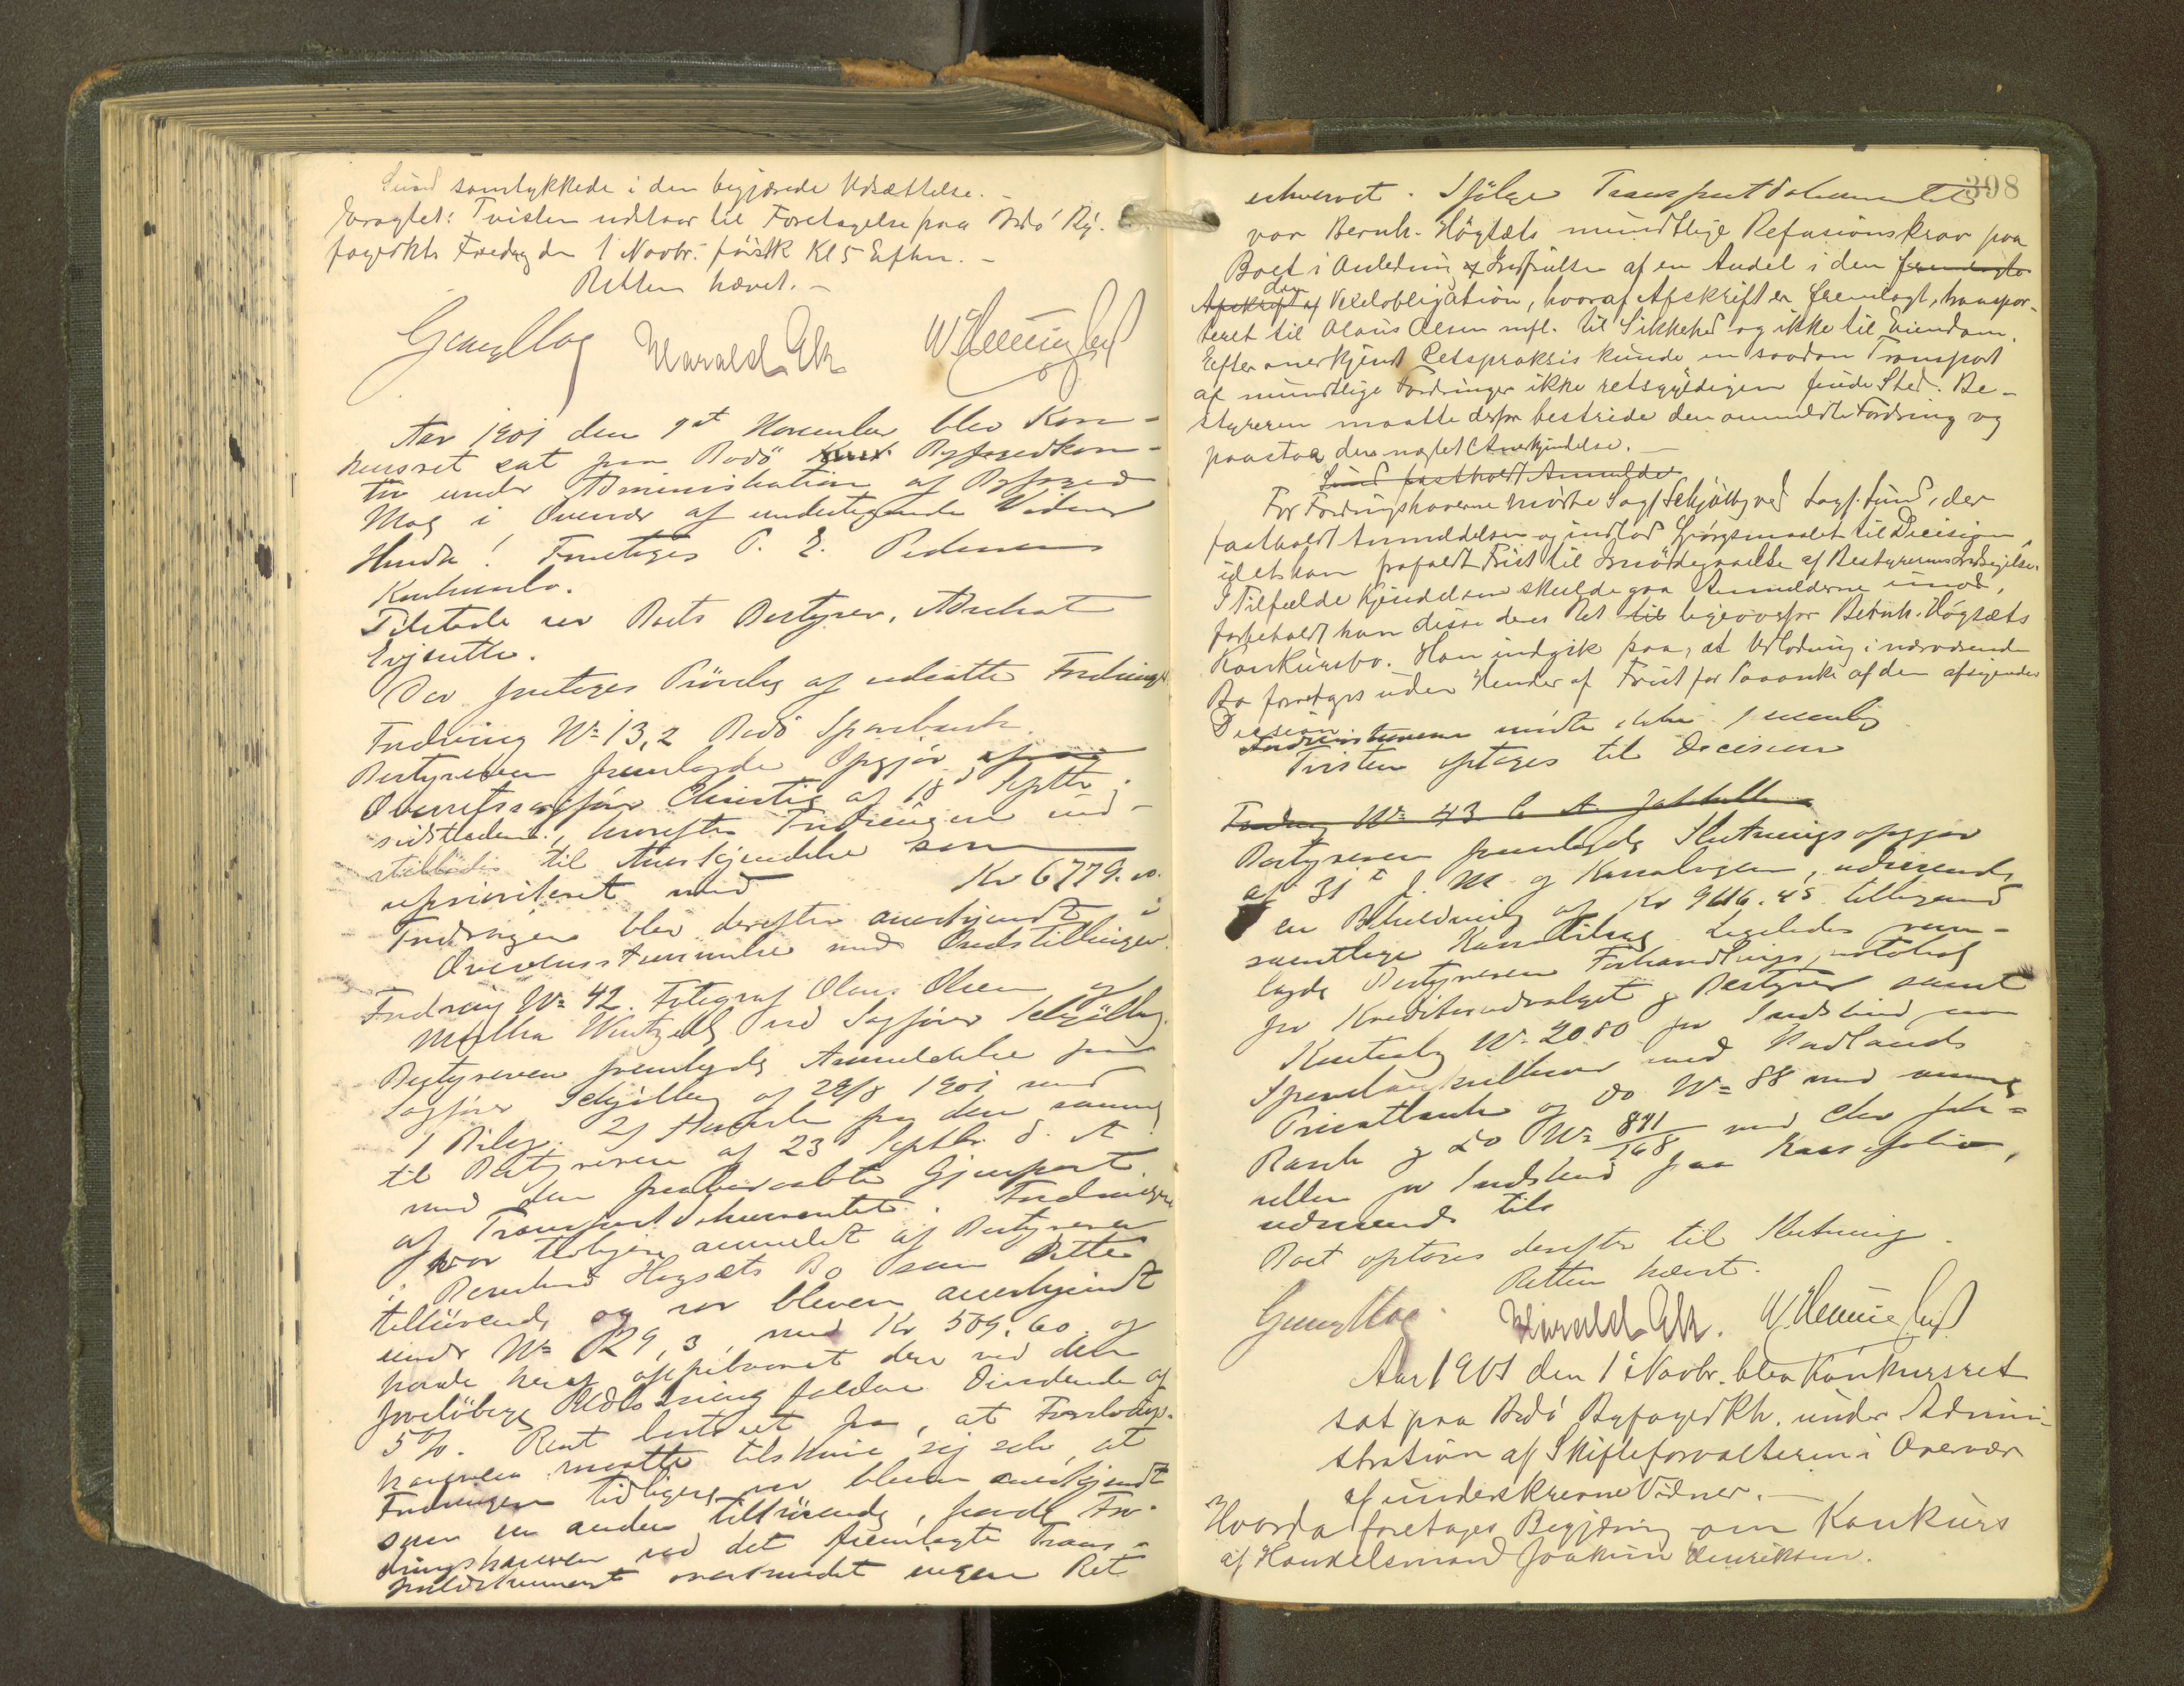 Lund samtykkede i den begjærede Udsættelse.
Eragtet: Tvisten udstaar til Foretagelse paa Bodø By-
fogedktr. Fredag den 1 Novbr. førstk Kl 5 Efterm. -
Retten hævet. -
Harald Ek
Aar 1901 den 1st November blev Kon-
kursret sat paa Bodø Byfogedkon-
tor under Administration af Byfoged
Mog i Overvær af undertegnede Vidner
Hvorda! Foretoges P. E. Pedersens
Konkursbo.
Tilstede var Boets Bestyrer, Advokat
Evjenthe.
Der foretoges Prøvelse af udsatte Fordringer
Fordring No 13,2 Bodø Sparebank
Bestyreren fremlagde Opgjør
Overretssagfører Christie af 18de Septbr.
sidstleden, hvorefter Fordringen ind-
stilledes til Anerkjendelse som
uprioriteret med Kr 6779.00.
Fordringen blev derefter anerkjendt i
Overensstemmelse med Indstillingen.
Fordring No 42. Fotograf Olaus Olsen og
Martha Wentzell ved Sagfører Schjølberg.
Bestyreren fremlagde Anmeldelse fra
Sagfører Schjølberg af 29/8 1901 med
1 Bilag. 2) Skrivelse fra den samme
til Bestyreren af 23d Septbr. d. A.
med den paaberaabte Gjenpart
af Transportdokumentet. Fordringen
var tidligere anmeldt af Bestyreren
i Bernhard Høgsæts Bo som dette
tilhørende og var bleven anerkjendt
under No 29,3 med Kr 509.60 og
havde heraf oppebaaret den ved den
foreløbige Udlodning faldne Dividende af
5%. Boet bestred paa, at Fordrings-
haverne maatte tilskrive sig selv, at
Fordringen tidligere var bleven anerkjendt
som en anden tilhørende, havde For-
dringshaveren ved det fremlagte Trans-
portdokument overhovedet ingen Ret
398
erhvervet. Ifølge Transportdokumentet
var Bernh. Høgsæts mundtlige Refusionskrav paa
Boet i Anledning af Indfrielse af en Andel i den fremlagte
Afskrift af den Vexelobligation, hvoraf Afskrift er fremlagt, transpor-
teret til Olaus Olsen mfl. til Sikkerhed og ikke til Eiendom.
Efter anerkjendt Retspraksis kunde en saadan Transport
af mundtlige Fordringer ikke retsgyldigen finde Sted. Be-
styreren maatte derfor bestride den anmeldte Fordring og
paastaa den nægtet Anerkjendelse. -
Lund fastholdt Anmeldel
For Fordringshaverne mødte Sagf Schjølberg ved Sagf. Lund, der
fastholdt Anmeldelsen og indlod Spørgsmaalet til Decision,
idet han frafaldt Frist til Imødegaaelse af Bestyrerens Indsigelse.
I Tilfælde Kjendelsen skulde gaa Anmelderne imod,
forbeholdt han disse deres Ret til ligeoverfor Bernh. Høgsæts
Konkursbo. Han indgik paa, at Udlodning i nærværende
Bo foretages uden Hensyn af Frist for Paaanke af den afsigendes
Decision.
mødte ikke
Tvisten optoges til Decision
Fordring No 43
Bestyreren fremlagde Slutningsopgjør
af 31te f. M. og Kassabogen, udvisende
en Beholdning af Kr 9616.45 tilligemed
samtlige Kassabilag. Ligeledes frem-
lagde Bestyreren Forhandlingsprotokol
for Kreditorudvalget og Bestyrer samt
Kontrabog No 2080 for Indskud
med Nordlands
Privatbank og do No 88 med samme
Bank og do No 891/168 med
for Indskud paa Kassefolio,
udvisende tils
Boet optoges derefter til Slutning.
Retten hævet.
Harald Ek.
Aar 1901 den 1 Novbr. blev Konkursret
sat paa Bodø Byfogedktr. under Admini-
stration af Skifteforvalteren i Overvær
af underskrevne Vidner. -
Hvorda foretoges Begjæring om Konkurs
af Handelsmand Joakim Henriksen.